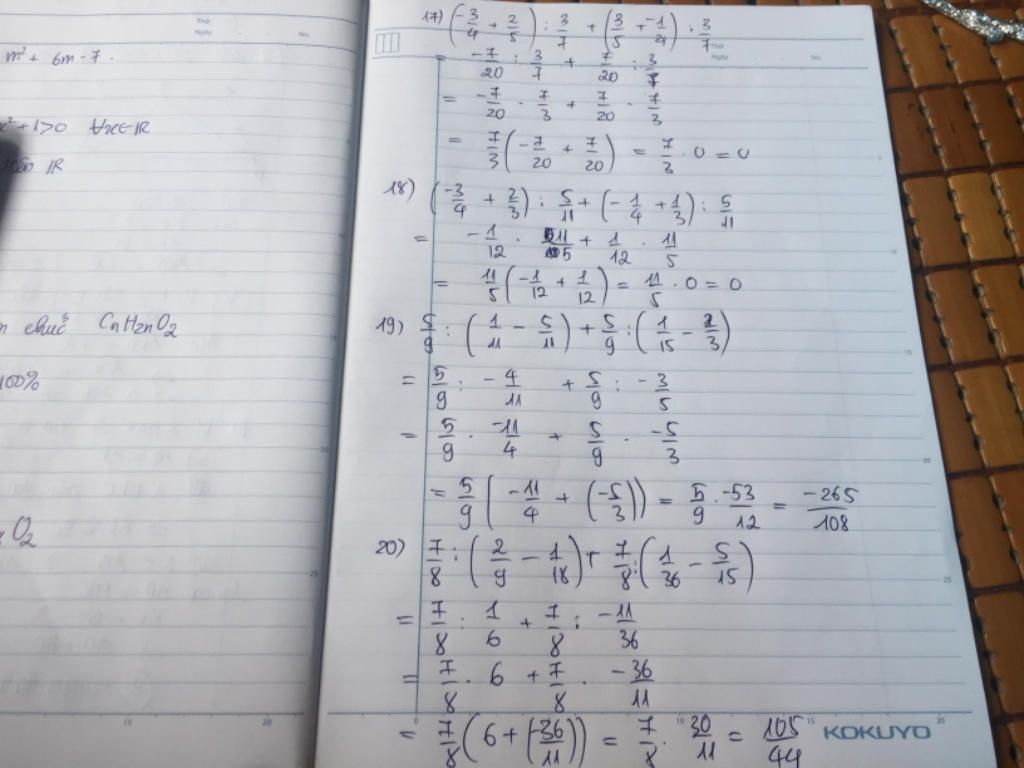 m² + 6m - 7.
x² + 1 > 0 ∀x∈ℝ
ℝ
chức CnH2nO2
100%
O2
Thứ
Ngày No.
17) (-3/4 + 2/5) : 3/7 + (3/5 + -1/4) : 3/7
= -7/20 : 3/7 + 7/20 : 3/7
= -7/20 . 7/3 + 7/20 . 7/3
= 7/3 (-7/20 + 7/20) = 7/3 . 0 = 0
18) (-3/4 + 2/3) : 5/11 + (-1/4 + 1/3) : 5/11
= -1/12 . 11/5 + 1/12 . 11/5
= 11/5 (-1/12 + 1/12) = 11/5 . 0 = 0
19) 5/9 : (1/11 - 5/11) + 5/9 : (1/15 - 2/3)
= 5/9 : -4/11 + 5/9 : -3/5
= 5/9 . -11/4 + 5/9 . -5/3
= 5/9 (-11/4 + (-5/3)) = 5/9 . -53/12 = -265/108
20) 7/8 : (2/9 - 1/18) + 7/8 : (1/36 - 5/15)
= 7/8 : 1/6 + 7/8 : -11/36
= 7/8 . 6 + 7/8 . -36/11
= 7/8 (6 + (-36/11)) = 7/8 . 30/11 = 105/44
KOKUYO